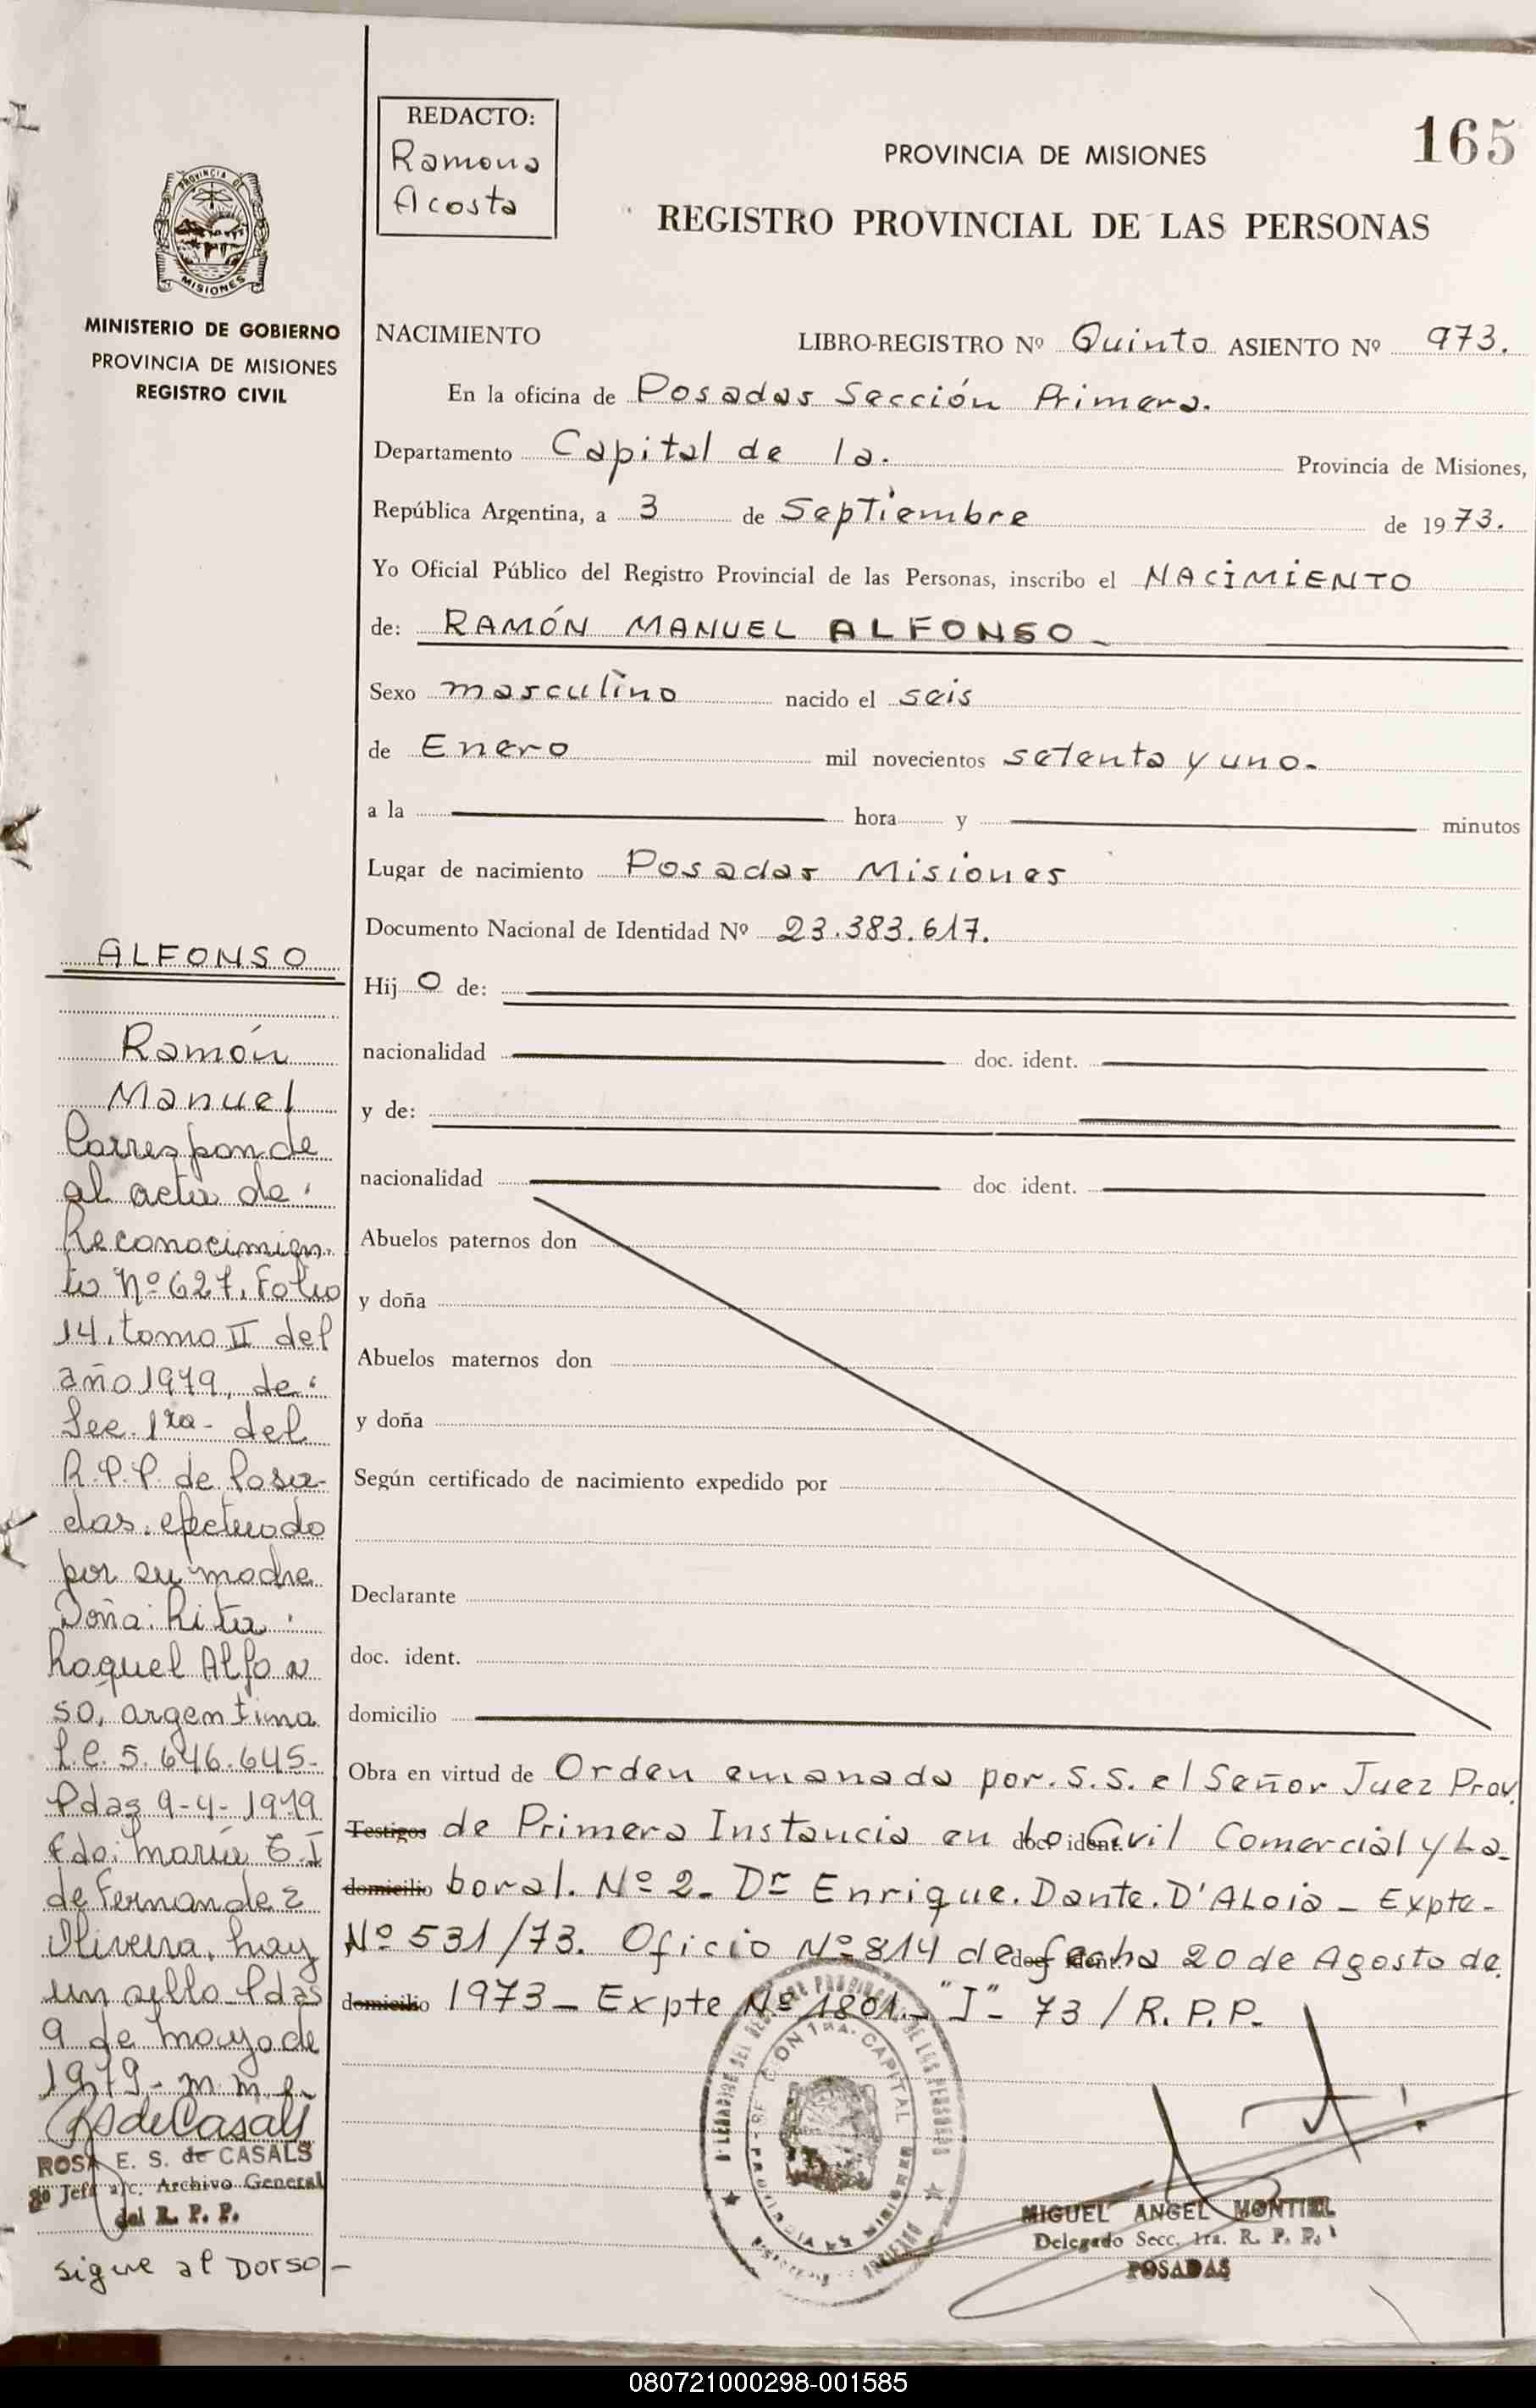 REDACTO:
Ramona
Acosta
165
PROVINCIA DE MISIONES
REGISTRO PROVINCIAL DE LAS PERSONAS
PROVINCIA DE
MISIONES
MINISTERIO DE GOBIERNO
PROVINCIA DE MISIONES
REGISTRO CIVIL
NACIMIENTO LIBRO-REGISTRO Nº Quinto ASIENTO Nº 973.
En la oficina de Posadas Sección Primera.
Departamento Capital de la. Provincia de Misiones,
República Argentina, a 3 de Septiembre de 1973.
Yo Oficial Público del Registro Provincial de las Personas, inscribo el NACIMIENTO
de: RAMÓN MANUEL ALFONSO_
Sexo masculino nacido el seis
de Enero mil novecientos setenta y uno.
a la hora y minutos
Lugar de nacimiento Posadas Misiones
Documento Nacional de Identidad Nº 23.383.617.
Hijo de:
nacionalidad doc. ident.
y de:
nacionalidad doc. ident.
Abuelos paternos don
y doña
Abuelos maternos don
y doña
Según certificado de nacimiento expedido por
Declarante
doc. ident.
domicilio
Obra en virtud de Orden emanada por. S.S. el Señor Juez Prov.
Testigos de Primera Instancia en lo Civil Comercial y La- doc. ident.
domicilio boral. Nº 2_ Dr Enrique. Dante. D'Aloia _ Expte-
Nº 531/73. Oficio Nº 814 de fecha 20 de Agosto de. doc. ident.
domicilio 1973_ Expte Nº 1801._ "I"- 73 / R. P. P.
ALFONSO
Ramón
Manuel
Corresponde
al acta de
Reconocimien-
to Nº 627, Folio
14, tomo II del
año 1979, de
Sec. 1ra- del
R.P.P. de Posa-
das. efectuado
por su madre
Doña: Rita
Raquel Alfon
so, argentina
L.C. 5.646.645-
Pdas 9-4-1979
Fdo: María E. I
de Fernandez
Olivera, hay
un sello Pdas
9 de mayo de
1979-
RSdeCasals
ROSA E. S. de CASALS
Jefe a/c. Archivo General
del R. P. P.
sigue al Dorso-
CAPITAL
MIGUEL ANGEL MONTIEL
Delegado Secc. 1ra. R. P. P.
POSADAS
080721000298-001585